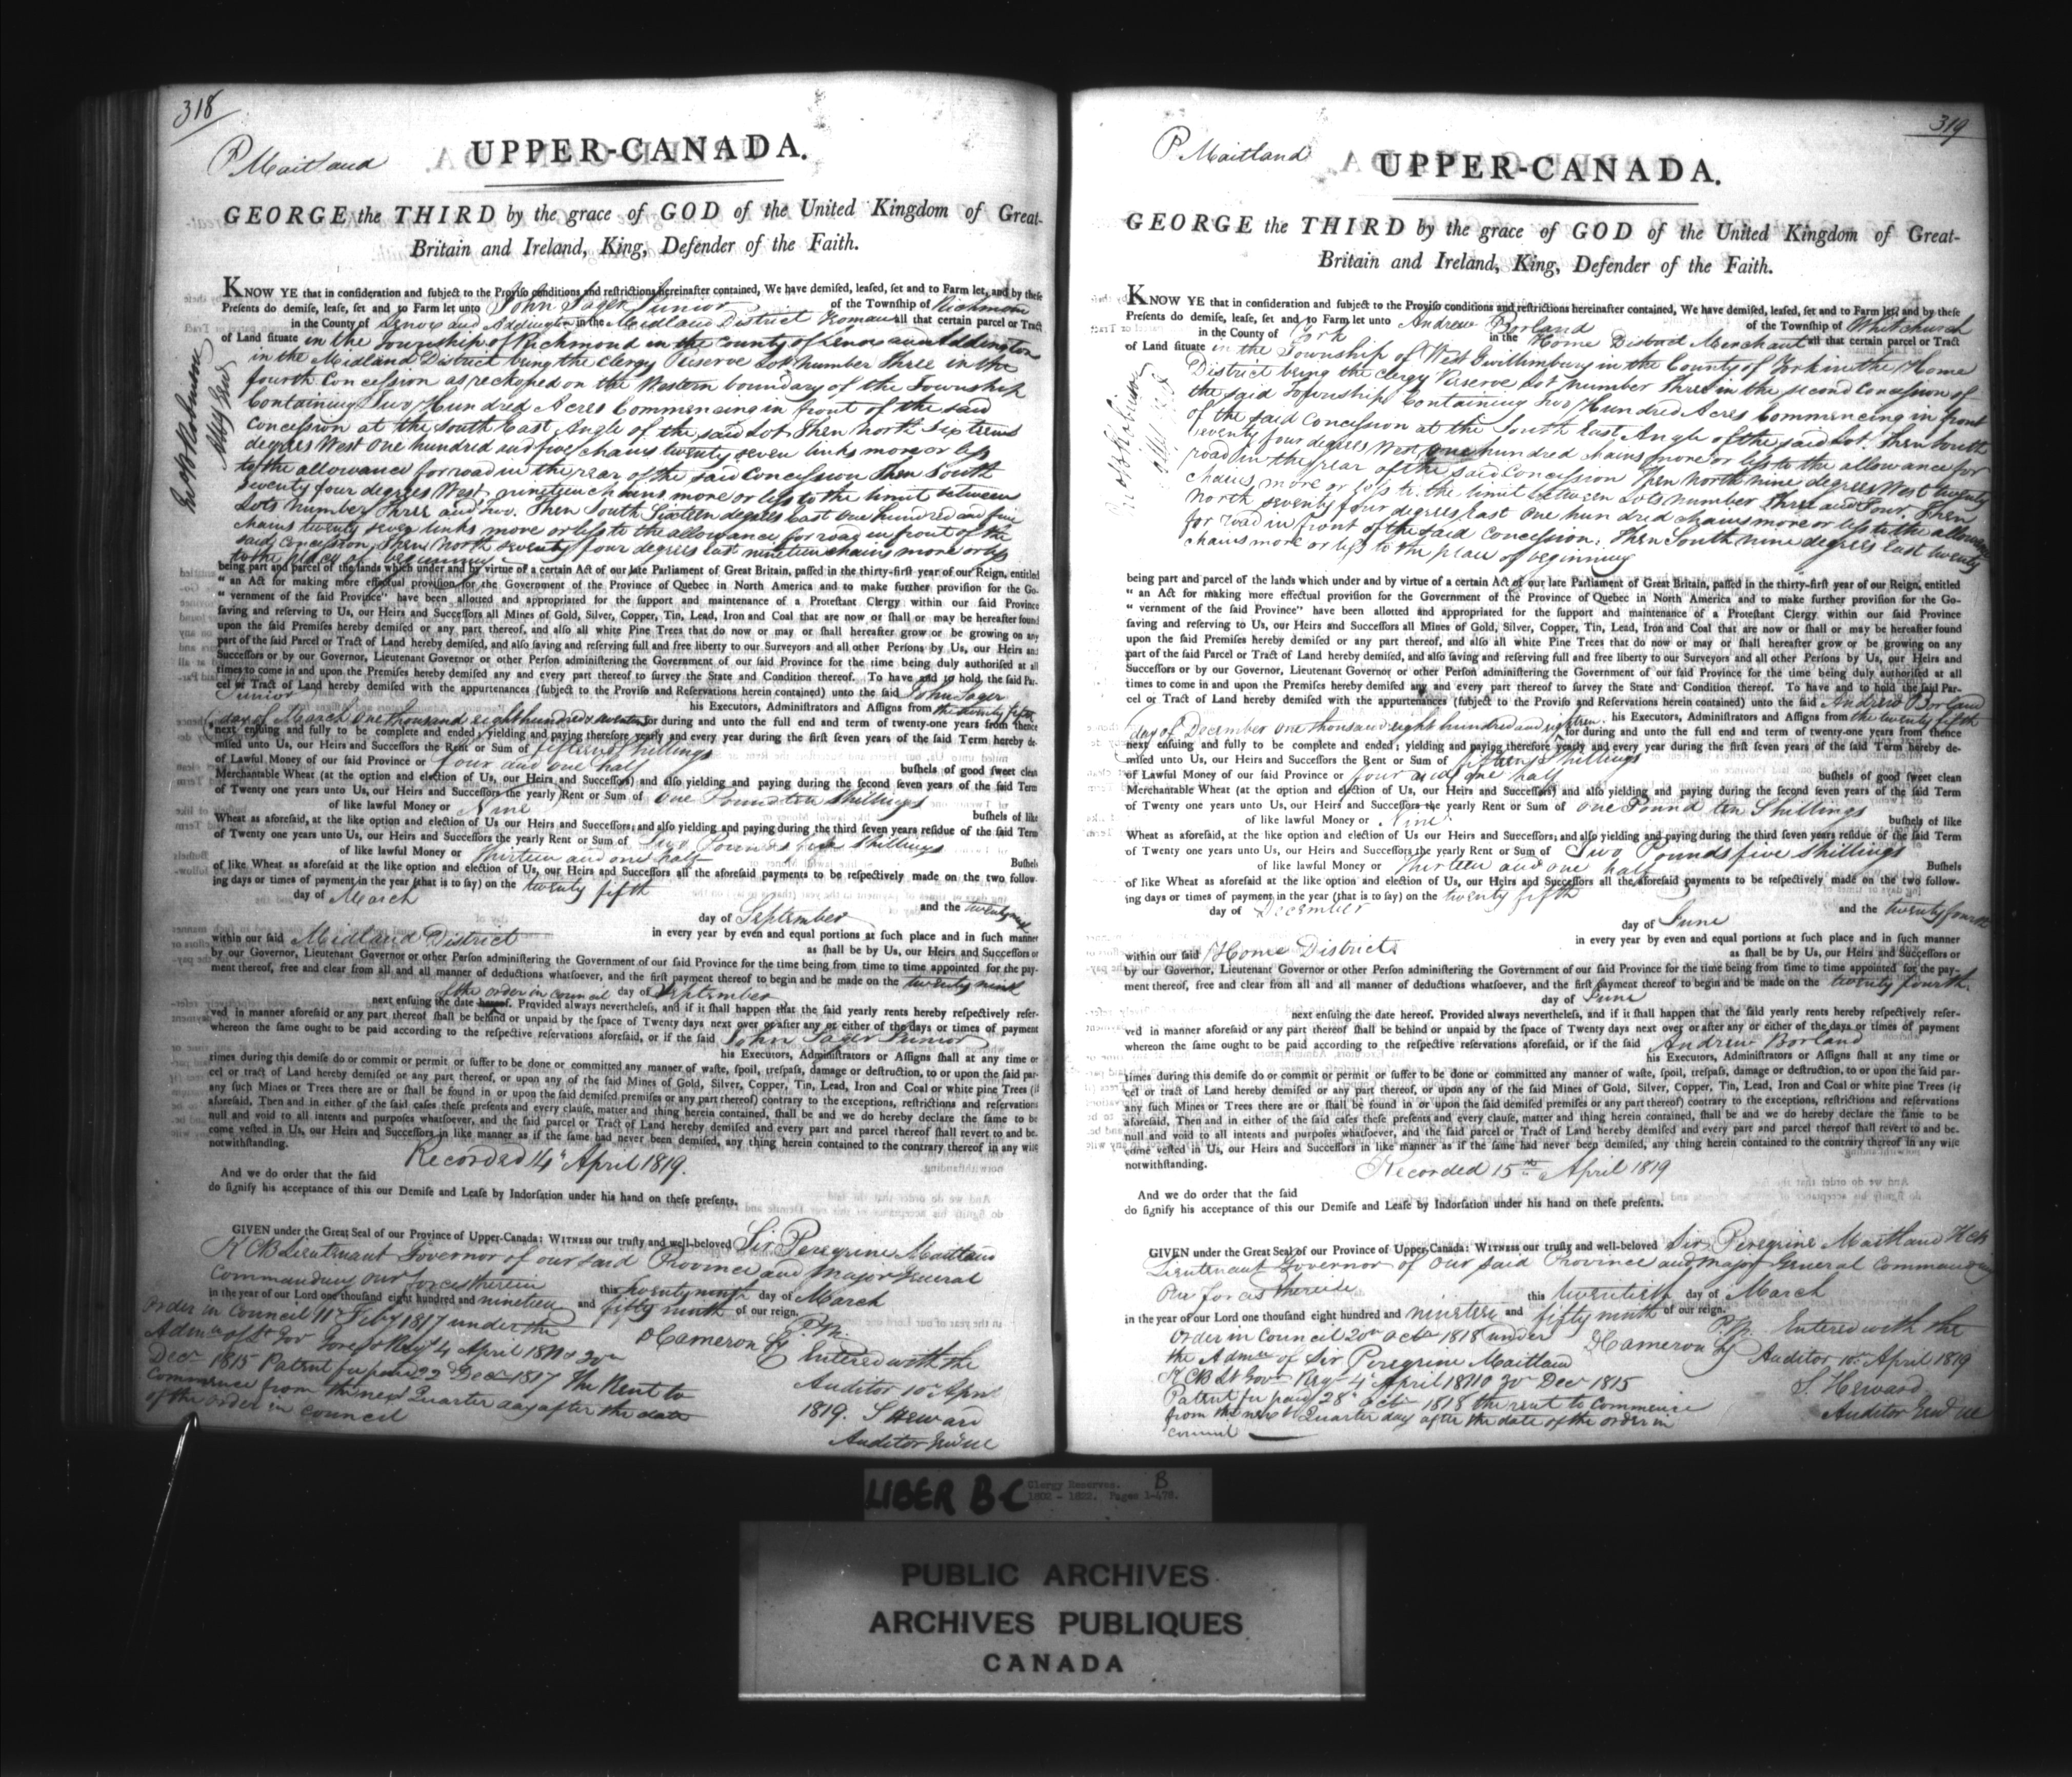 318
P Maitland
UPPER-CANADA.
GEORGE the THIRD by the grace of GOD of the United Kingdom of Great-
Britain and Ireland, King, Defender of the Faith.
KNOW YE that in consideration and subject to the Proviso conditions and restrictions hereinafter contained, We have demised, leased, set and to Farm let, and by these
Presents do demise, lease, set and to Farm let unto John Sager Junior of the Township of Richmond
in the County of Lenox and Addington in the Midland District Yeoman all that certain parcel or Tract
of Land situate in the Township of Richmond in the County of Lenox and Addington
in the Midland District being the Clergy Reserve Lot Number Three in the
fourth Concession as reckoned on the Western boundary of the Township
Containing Two Hundred Acres Commencing in front of the said
Concession at the South East Angle of the said Lot. Then North Sixteen
degrees West One hundred and five chains twenty seven links more or less
to the allowance for road in the rear of the said Concession Then South
seventy four degrees West nineteen chains more or less to the limit between
Lots Number Three and Two. Then South Sixteen degrees East One hundred and five
chains twenty seven links more or less to the allowance for road in front of the
said Concession, Then North seventy four degrees East nineteen chains more or less
to the place of beginning
being part and parcel of the lands which under and by virtue of a certain Act of our late Parliament of Great Britain, passed in the thirty-first year of our Reign, entitled
" an Act for making more effectual provision for the Government of the Province of Quebec in North America and to make further provision for the Go-
" vernment of the said Province" have been allotted and appropriated for the support and maintenance of a Protestant Clergy within our said Province
saving and reserving to Us, our Heirs and Successors all Mines of Gold, Silver, Copper, Tin, Lead, Iron and Coal that are now or shall or may be hereafter found
upon the said Premises hereby demised or any part thereof, and also all white Pine Trees that do now or may or shall hereafter grow or be growing on any
part of the said Parcel or Tract of Land hereby demised, and also saving and reserving full and free liberty to our Surveyors and all other Persons by Us, our Heirs and
Successors or by our Governor, Lieutenant Governor or other Person administering the Government of our said Province for the time being duly authorised at all
times to come in and upon the Premises hereby demised any and every part thereof to survey the State and Condition thereof. To have and to hold, the said Par-
cel or Tract of Land hereby demised with the appurtenances (subject to the Proviso and Reservations herein contained) unto the said John Sager
Junior his Executors, Administrators and Assigns from the twenty fifth
day of March One thousand eight hundred & seventeen for during and unto the full end and term of twenty-one years from thence
next ensuing and fully to be complete and ended; yielding and paying therefore yearly and every year during the first seven years of the said Term hereby de-
mised unto Us, our Heirs and Successors the Rent or Sum of fifteen Shillings
of Lawful Money of our said Province or four and one half bushels of good sweet clean
Merchantable Wheat (at the option and election of Us, our Heirs and Successors) and also yielding and paying during the second seven years of the said Term
of Twenty one years unto Us, our Heirs and Successors the yearly Rent or Sum of One Pound ten Shillings
of like lawful Money or Nine bushels of like
Wheat as aforesaid, at the like option and election of Us our Heirs and Successors; and also yielding and paying during the third seven years residue of the said Term
of Twenty one years unto Us, our Heirs and Successors the yearly Rent or Sum of Two Pounds five Shillings
of like lawful Money or Thirteen and one half Bushels
of like Wheat as aforesaid at the like option and election of Us, our Heirs and Successors all the aforesaid payments to be respectively made on the two follow-
ing days or times of payment in the year (that is to say) on the twenty fifth
day of March and the twenty nine
day of September
within our said Midland District in every year by even and equal portions at such place and in such manner
as shall be by Us, our Heirs and Successors or
by our Governor, Lieutenant Governor or other Person administering the Government of our said Province for the time being from time to time appointed for the pay-
ment thereof, free and clear from all and all manner of deductions whatsoever, and the first payment thereof to begin and be made on the twenty nine
of the order in council day of September
next ensuing the date hereof. Provided always nevertheless, and if it shall happen that the said yearly rents hereby respectively reser-
ved in manner aforesaid or any part thereof shall be behind or unpaid by the space of Twenty days next over or after any or either of the days or times of payment
whereon the same ought to be paid according to the respective reservations aforesaid, or if the said John Sager Junior
his Executors, Administrators or Assigns shall at any time or
times during this demise do or commit or permit or suffer to be done or committed any manner of waste, spoil, trespass, damage or destruction, to or upon the said par-
cel or tract of Land hereby demised or any part thereof, or upon any of the said Mines of Gold, Silver, Copper, Tin, Lead, Iron and Coal or white pine Trees (if
any such Mines or Trees there are or shall be found in or upon the said demised premises or any part thereof) contrary to the exceptions, restrictions and reservations
aforesaid, Then and in either of the said cases these presents and every clause, matter and thing herein contained, shall be and we do hereby declare the same to be
null and void to all intents and purposes whatsoever, and the said parcel or Tract of Land hereby demised and every part and parcel thereof shall revert to and be-
come vested in Us, our Heirs and Successors in like manner as if the same had never been demised, any thing herein contained to the contrary thereof in any wise
notwithstanding.
Recorded 14th April 1819.
And we do order that the said
do signify his acceptance of this our Demise and Lease by Indorsation under his hand on these presents.
GIVEN under the Great Seal of our Province of Upper-Canada: WITNESS our trusty and well-beloved Sir Peregrine Maitland
KCB Lieutenant Governor of our said Province and Major General
Commanding our forces therein this twenty ninth day of March
in the year of our Lord one thousand eight hundred and nineteen and fifty ninth of our reign.
P.M.
Order in Council 11th Feby 1817 under the
D Cameron Sy
Dec 1815 Patent fee paid 22 Decr 1817 The Rent to
Commence from the next Quarter day after the date
of the order in council
Entered with the
Auditor 10th April
1819. S Heward
Auditor Genl UC
Robinson
Atty Genl
319
P Maitland
UPPER-CANADA.
GEORGE the THIRD by the grace of GOD of the United Kingdom of Great-
Britain and Ireland, King, Defender of the Faith.
KNOW YE that in consideration and subject to the Proviso conditions and restrictions hereinafter contained, We have demised, leased, set and to Farm let, and by these
Presents do demise, lease, set and to Farm let unto Andrew Borland of the Township of Whitchurch
in the County of York in the Home District Merchant all that certain parcel or Tract
of Land situate in the Township of West Gwillimbury in the County of York in the Home
District being the Clergy Reserve Lot Number Three in the second Concession of
the said Township Containing Two Hundred Acres Commencing in front
of the said Concession at the South East Angle of the said Lot. Then South
seventy four degrees West One hundred chains more or less to the allowance for
road in the rear of the said Concession Then North nine degrees West twenty
chains more or less to the limit between Lots Number Three and Four, Then
North seventy four degrees East One hundred chains more or less to the allowance
for road in front of the said Concession. Then South nine degrees East twenty
chains more or less to the place of beginning
being part and parcel of the lands which under and by virtue of a certain Act of our late Parliament of Great Britain, passed in the thirty-first year of our Reign, entitled
" an Act for making more effectual provision for the Government of the Province of Quebec in North America and to make further provision for the Go-
" vernment of the said Province" have been allotted and appropriated for the support and maintenance of a Protestant Clergy within our said Province
saving and reserving to Us, our Heirs and Successors all Mines of Gold, Silver, Copper, Tin, Lead, Iron and Coal that are now or shall or may be hereafter found
upon the said Premises hereby demised or any part thereof, and also all white Pine Trees that do now or may or shall hereafter grow or be growing on any
part of the said Parcel or Tract of Land hereby demised, and also saving and reserving full and free liberty to our Surveyors and all other Persons by Us, our Heirs and
Successors or by our Governor, Lieutenant Governor or other Person administering the Government of our said Province for the time being duly authorised at all
times to come in and upon the Premises hereby demised any and every part thereof to survey the State and Condition thereof. To have and to hold the said Par-
cel or Tract of Land hereby demised with the appurtenances (subject to the Proviso and Reservations herein contained) unto the said Andrew Borland
his Executors, Administrators and Assigns from the twenty fifth
day of December One thousand eight hundred and eighteen for during and unto the full end and term of twenty-one years from thence
next ensuing and fully to be complete and ended; yielding and paying therefore yearly and every year during the first seven years of the said Term hereby de-
mised unto Us, our Heirs and Successors the Rent or Sum of fifteen Shillings
of Lawful Money of our said Province or four and one half bushels of good sweet clean
Merchantable Wheat (at the option and election of Us, our Heirs and Successors) and also yielding and paying during the second seven years of the said Term
of Twenty one years unto Us, our Heirs and Successors the yearly Rent or Sum of One Pound ten Shillings
of like lawful Money or Nine bushels of like
Wheat as aforesaid, at the like option and election of Us our Heirs and Successors; and also yielding and paying during the third seven years residue of the said Term
of Twenty one years unto Us, our Heirs and Successors the yearly Rent or Sum of Two Pounds five Shillings
of like lawful Money or Thirteen and one half Bushels
of like Wheat as aforesaid at the like option and election of Us, our Heirs and Successors all the aforesaid payments to be respectively made on the two follow-
ing days or times of payment in the year (that is to say) on the twenty fifth
day of December and the twenty fourth
day of June
within our said Home District in every year by even and equal portions at such place and in such manner
as shall be by Us, our Heirs and Successors or
by our Governor, Lieutenant Governor or other Person administering the Government of our said Province for the time being from time to time appointed for the pay-
ment thereof, free and clear from all and all manner of deductions whatsoever, and the first payment thereof to begin and be made on the twenty fourth
day of June
next ensuing the date hereof. Provided always nevertheless, and if it shall happen that the said yearly rents hereby respectively reser-
ved in manner aforesaid or any part thereof shall be behind or unpaid by the space of Twenty days next over or after any or either of the days or times of payment
whereon the same ought to be paid according to the respective reservations aforesaid, or if the said Andrew Borland
his Executors, Administrators or Assigns shall at any time or
times during this demise do or commit or permit or suffer to be done or committed any manner of waste, spoil, trespass, damage or destruction, to or upon the said par-
cel or tract of Land hereby demised or any part thereof, or upon any of the said Mines of Gold, Silver, Copper, Tin, Lead, Iron and Coal or white pine Trees (if
any such Mines or Trees there are or shall be found in or upon the said demised premises or any part thereof) contrary to the exceptions, restrictions and reservations
aforesaid, Then and in either of the said cases these presents and every clause, matter and thing herein contained, shall be and we do hereby declare the same to be
null and void to all intents and purposes whatsoever, and the said parcel or Tract of Land hereby demised and every part and parcel thereof shall revert to and be-
come vested in Us, our Heirs and Successors in like manner as if the same had never been demised, any thing herein contained to the contrary thereof in any wise
notwithstanding.
Recorded 15th April 1819
And we do order that the said
do signify his acceptance of this our Demise and Lease by Indorsation under his hand on these presents.
GIVEN under the Great Seal of our Province of Upper-Canada: WITNESS our trusty and well-beloved Sir Peregrine Maitland KCB
Lieutenant Governor of our said Province and Major General Commanding
Our forces therein this twentieth day of March
in the year of our Lord one thousand eight hundred and nineteen and fifty ninth of our reign.
P.M.
Order in Council 20th Octr 1818 under
the Admn of Sir Peregrine Maitland
KCB Lt Govr Regn 4th April 1811 & 30 Decr 1815
Patent fee paid 28th Octr 1818 the rent to Commence
from the next Quarter day after the date of the order in
council
D Cameron Sy
Entered with the
Auditor 10th April 1819
S. Heward
Auditor Genl UC
Robinson
LIBER B-C
Clergy Reserves. B
1802 - 1822. Pages 1-478.
PUBLIC ARCHIVES
ARCHIVES PUBLIQUES
CANADA